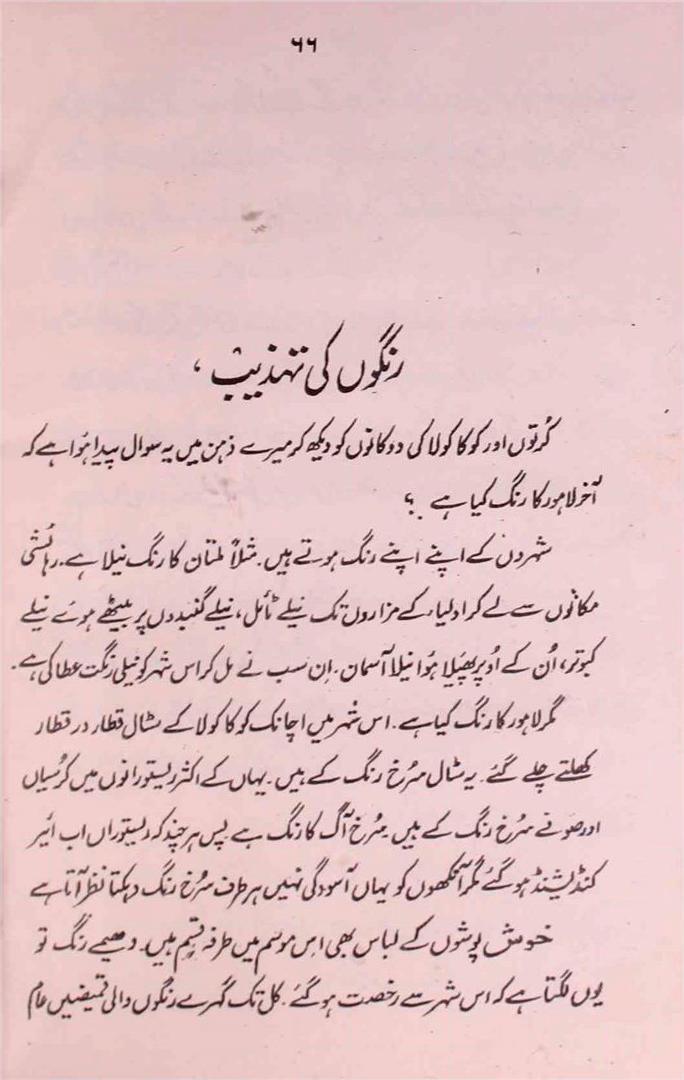 ۶۶
رنگوں کی تہذیب ،
کُرتوں اور کوکا کولا کی دوکانوں کو دیکھ کر میرے ذہن میں یہ سوال پیدا ہُوا ہے کہ
آخر لاہور کا رنگ کیا ہے ؟
شہروں کے اپنے اپنے رنگ ہوتے ہیں۔ مثلاً ملتان کا رنگ نیلا ہے۔ رہائشی
مکانوں سے لے کر اولیاء کے مزاروں تک نیلے ٹائل، نیلے گنبدوں پر بیٹھے ہوئے نیلے
کبوتر، اُن کے اُوپر پھیلا ہُوا نیلا آسمان۔ اِن سب نے مل کر اس شہر کو نیلی رنگت عطا کی ہے۔
مگر لاہور کا رنگ کیا ہے۔ اس شہر میں اچانک کوکا کولا کے سٹال قطار در قطار
کھلتے چلے گئے۔ یہ سٹال سُرخ رنگ کے ہیں۔ یہاں کے اکثر ریستورانوں میں کرسیاں
اور صوفے سُرخ رنگ کے ہیں۔ سُرخ آگ کا رنگ ہے پس ہر چند کہ ریستوراں اب ائیر
کنڈیشنڈ ہو گئے مگر آنکھوں کو یہاں آسودگی نہیں ہر طرف سُرخ رنگ دہکتا نظر آتا ہے
خوش پوشوں کے لباس بھی اس موسم میں طرفہ قسم ہیں۔ دھیمے رنگ تو
یوں لگتا ہے کہ اس شہر سے رخصت ہو گئے۔ کل تک گہرے رنگوں والی قمیضیں عام